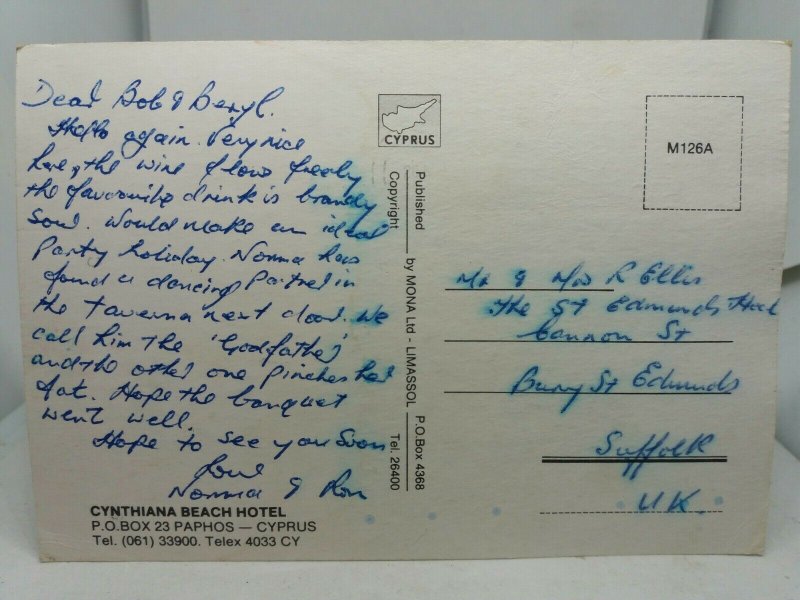 Dear Bob & Beryl.
Hello again. Very nice
here, the wine flows freely
the favourite drink is brandy
sour. Would make an ideal
party holiday. Norma has
found a dancing partner in
the taverna next door. We
call him the 'Godfather'
and the other one pinches her
fat. Hope the banquet
went well.
Hope to see you soon
Love
Norma & Ron
CYNTHIANA BEACH HOTEL
P.O.BOX 23 PAPHOS — CYPRUS
Tel. (061) 33900. Telex 4033 CY
CYPRUS
Published by MONA Ltd - LIMASSOL P.O.Box 4368
Copyright Tel. 26400
M126A
Mr & Mrs R Ellis
The St Edmunds Head
Cannon St
Bury St Edmunds
Suffolk
U.K.